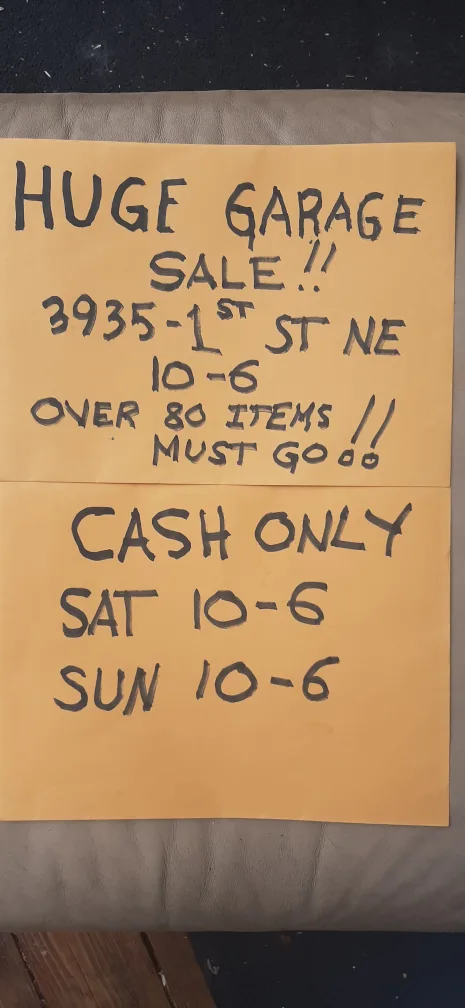 HUGE GARAGE
SALE!!
3935-1ST ST NE
10-6
OVER 80 ITEMS!!
MUST GO!!
CASH ONLY
SAT 10-6
SUN 10-6